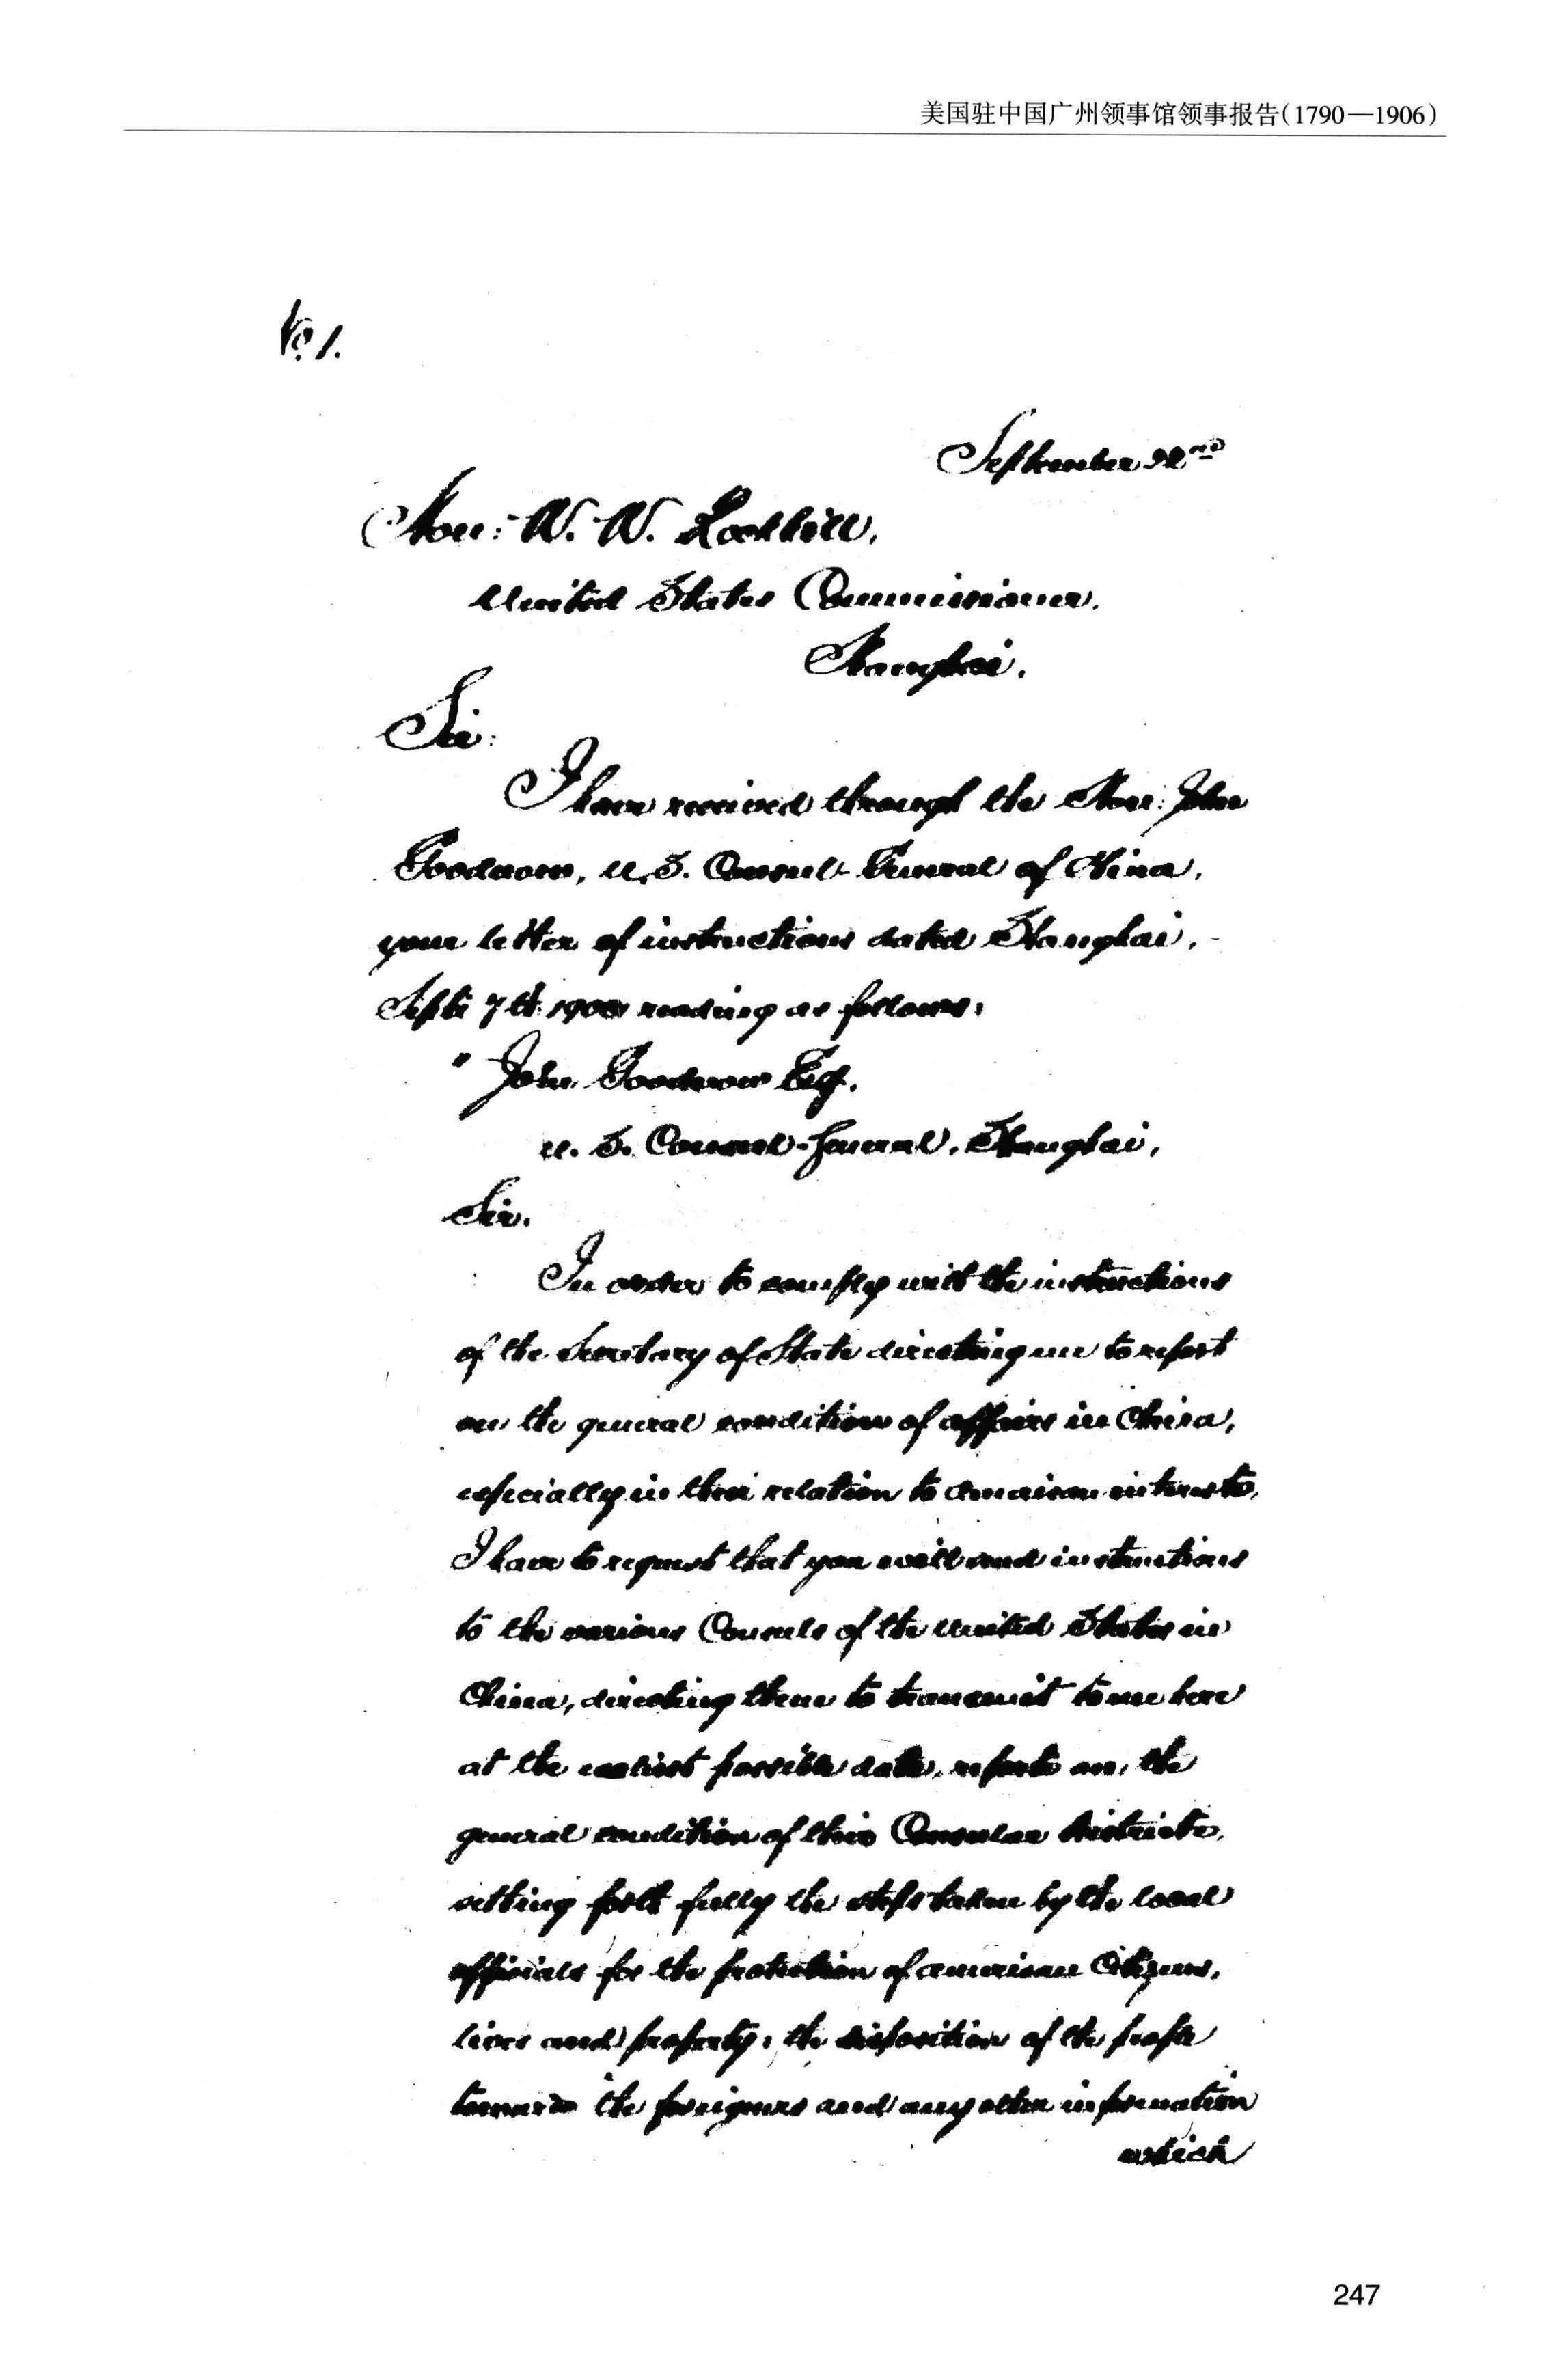 美国驻中国广州领事馆领事报告(1790—1906)
No 1.
September 22nd
Hon: W. W. Rockhill,
United States Commissioner.
Shanghai.
Sir:
I have received through the Hon: John
Goodnow, U.S. Consul-General of China,
your letter of instructions dated Shanghai,
Sept: 7th 1900 reading as follows:
" John Goodnow Esq.
U. S. Consul-General, Shanghai,
Sir.
In order to comply with the instructions
of the Secretary of State directing me to report
on the general condition of affairs in China,
especially in their relation to American interests,
I have to request that you will send instructions
to the various Consuls of the United States in
China, directing them to transmit to me here
at the earliest possible date, reports on the
general condition of their Consular Districts,
setting forth fully the steps taken by the local
officials for the protection of American Citizens,
lives and property; the disposition of the people
towards the foreigners and any other information
which
247